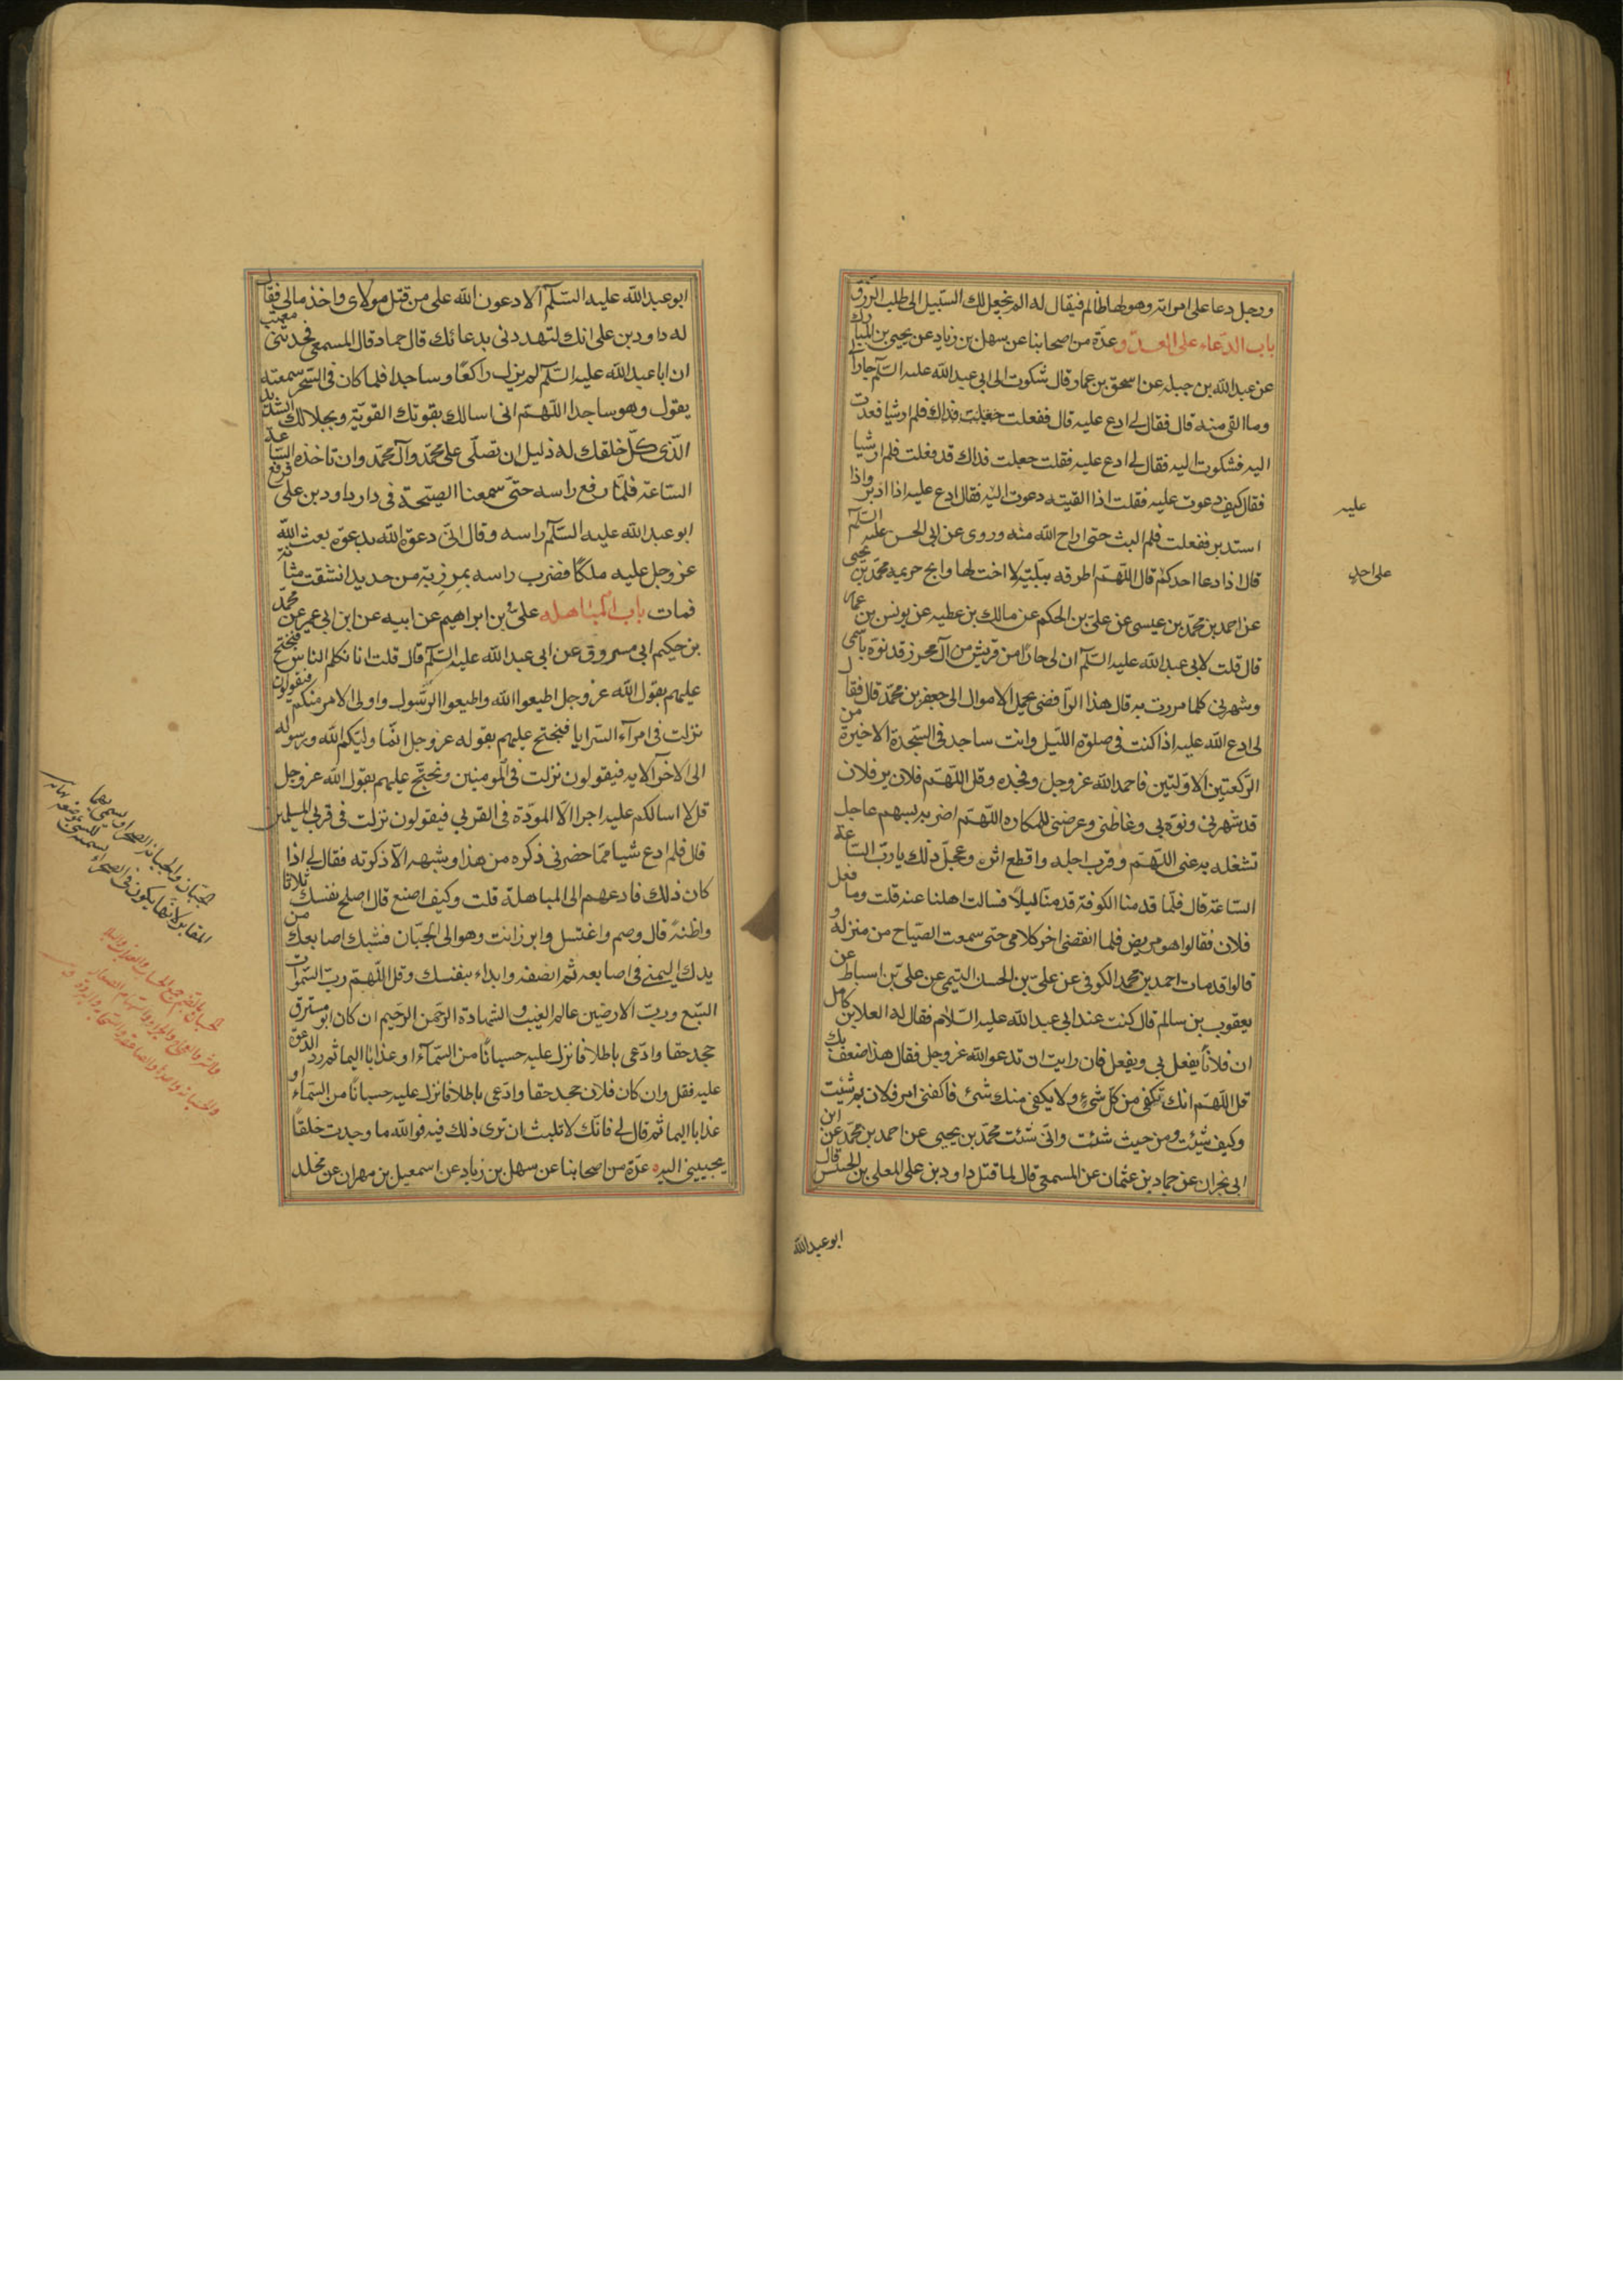 ورجل دعا على امراته وهو لها ظالم فيقال له الم نجعل لك السبيل الى طلب الرزق
باب الدعاء على العدو عدة من اصحابنا عن سهل بن زياد عن يحيى بن المبارك
عن عبدالله بن جبله عن اسحق بن عمار قال شكوت الى ابى عبدالله عليه السلم جارا لى
وما القى منه قال فقال لى ادع عليه قال ففعلت جعلت فداك فلم ار شيا فعدت
اليه فشكوت اليه فقال لى ادع عليه فقلت جعلت فداك قد فعلت فلم ار شيا
فقال كيف دعوت عليه فقلت اذا لقيته دعوت اليه فقال ادع عليه اذا ادبر واذا
استدبر ففعلت فلم البث حتى اراح الله منه وروى عن ابى الحسن عليه السلم
قال اذا دعا احدكم قال اللهم اطرقه ببلية لا اخت لها وابح حريمه محمد بن يحيى
عن احمد بن محمد بن عيسى عن على بن الحكم عن مالك بن عطيه عن يونس بن عمار
قال قلت لابى عبدالله عليه السلم ان لى جارا من قريش من آل محرز قد نوه باسمى
وشهرنى كلما مررت به قال هذا الرافضى يحمل الاموال الى جعفر بن محمد قال فقال
لى ادع الله عليه اذا كنت فى صلوة الليل وانت ساجد فى السجدة الاخيرة من
الركعتين الاولتين فاحمد الله عز وجل ومجده وقل اللهم فلان بن فلان
قد شهرنى ونوه بى وغاظنى وعرضنى للمكاره اللهم اضربه بسهم عاجل
تشغله به عنى اللهم وقرب اجله واقطع اثره وعجل ذلك يا رب الساعة
الساعة قال فلما قدمنا الكوفة قدمنا ليلا فسالت اهلنا عنه قلت وما فعل
فلان فقالوا هو مريض فلما انقضى اخر كلامى حتى سمعت الصياح من منزله و
قالوا قد مات احمد بن محمد الكوفى عن على بن الحسن التيمى عن على بن اسباط عن
يعقوب بن سالم قال كنت عند ابى عبدالله عليه السلام فقال له العلا بن كامل
ان فلانا يفعل بى ويفعل فان رايت ان تدعو الله عز وجل فقال هذا ضعف بك
قل اللهم انك تكفى من كل شىء ولا يكفى منك شىء فاكفنى امر فلان بم شئت
وكيف شئت ومن حيث شئت وانى شئت محمد بن يحيى عن احمد بن محمد عن ابن
ابى نجران عن حماد بن عثمان عن المسمعى قال لما قتل داود بن على المعلى بن الخنيس قال
عليه
على احد
ابو عبدالله
ابو عبدالله عليه السلم لادعون الله على من قتل مولاى واخذ مالى فقال
له داود بن على انك لتهددنى بدعائك قال حماد قال المسمعى فحدثنى معتب
ان ابا عبدالله عليه السلم لم يزل راكعا وساجدا فلما كان فى السحر سمعته
يقول وهو ساجد اللهم انى اسالك بقوتك القوية وبجلالك الشديد
الذى كل خلقك له ذليل ان تصلى على محمد وآل محمد وان تاخذه الساعة
الساعة فلما رفع راسه حتى سمعنا الصيحة فى دار داود بن على فرفع
ابو عبدالله عليه السلم راسه وقال انى دعوت الله بدعوة بعث الله
عز وجل عليه ملكا فضرب راسه بمرزبة من حديد انشقت مثانته
فمات باب المباهله على بن ابراهيم عن ابيه عن ابن ابى عمير عن محمد
بن حكيم ابى مسروق عن ابى عبدالله عليه السلم قال قلت انا نكلم الناس فنحتج
عليهم بقول الله عز وجل اطيعوا الله واطيعوا الرسول واولى الامر منكم فيقولون
نزلت فى امرآء السرايا فنحتج عليهم بقوله عز وجل انما وليكم الله ورسوله
الى الاخر الايه فيقولون نزلت فى المومنين ونحتج عليهم بقول الله عز وجل
قل لا اسالكم عليه اجرا الا المودة فى القربى فيقولون نزلت فى قربى المسلمين
قال فلم ادع شيا مما حضرنى ذكره من هذا وشبهه الا ذكرته فقال لى اذا
كان ذلك فادعهم الى المباهلة قلت وكيف اصنع قال اصلح نفسك ثلاثا
واظنه قال وصم واغتسل وابرز انت وهو الى الجبان فشبك اصابعك من
يدك اليمنى فى اصابعه ثم انصفه وابداء بنفسك وقل اللهم رب السموات
السبع ورب الارضين عالم الغيب والشهادة الرحمن الرحيم ان كان ابو مسترق
جحد حقا وادعى باطلا فانزل عليه حسبانا من السمآء او عذابا اليما ثم رد الدعوة
عليه فقل وان كان فلان جحد حقا وادعى باطلا فانزل عليه حسبانا من السمآء او
عذابا اليما ثم قال لى فانك لا تلبث ان ترى ذلك فيه فوالله ما وجدت خلقا
يجيبنى اليه عدة من اصحابنا عن سهل بن زياد عن اسمعيل بن مهران عن مخلد
الجبان والجبانة الصحرا ويسمى بهما
المقابر لانها يكون فى الصحراء تسمية للشىء بموضعه